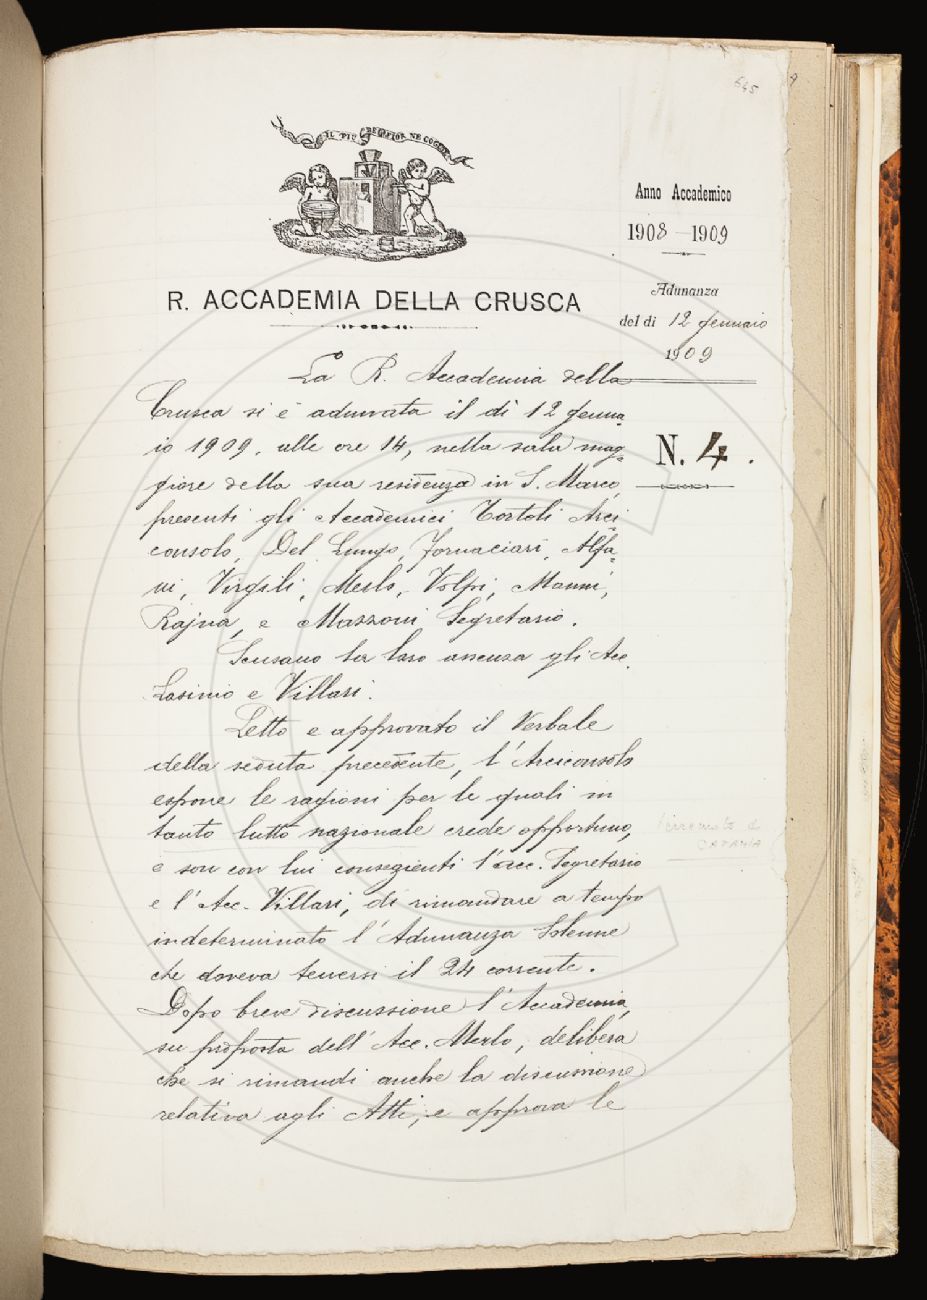 545
IL PIÙ BEL FIOR NE COGLIE
Anno Accademico
1908-1909
Adunanza
del dì 12 gennaio
1909
N. 4.
R. ACCADEMIA DELLA CRUSCA
La R. Accademia della
Crusca si è adunata il dì 12 genna-
io 1909, alle ore 14, nella sala mag-
giore della sua residenza in S. Marco,
presenti gli Accademici Tortoli Arci-
consolo, Del Lungo, Fornaciari, Alfa-
ni, Virgili, Merlo, Volpi, Manni,
Rajna, e Mazzoni Segretario.
Scusano la loro assenza gli Acc.
Lasinio e Villari.
Letto e approvato il Verbale
della seduta precedente, l'Arciconsolo
espone le ragioni per le quali in
tanto lutto nazionale crede opportuno,
e son con lui consezienti l'acc. Segretario
e l'Acc. Villari, di rimandare a tempo
indeterminato l'Adunanza Solenne
che doveva tenersi il 24 corrente.
Dopo breve discussione l'Accademia,
su proposta dell'Acc. Merlo, delibera
che si rimandi anche la discussione
relativa agli Atti; e approva le
terremoto di
CATANIA